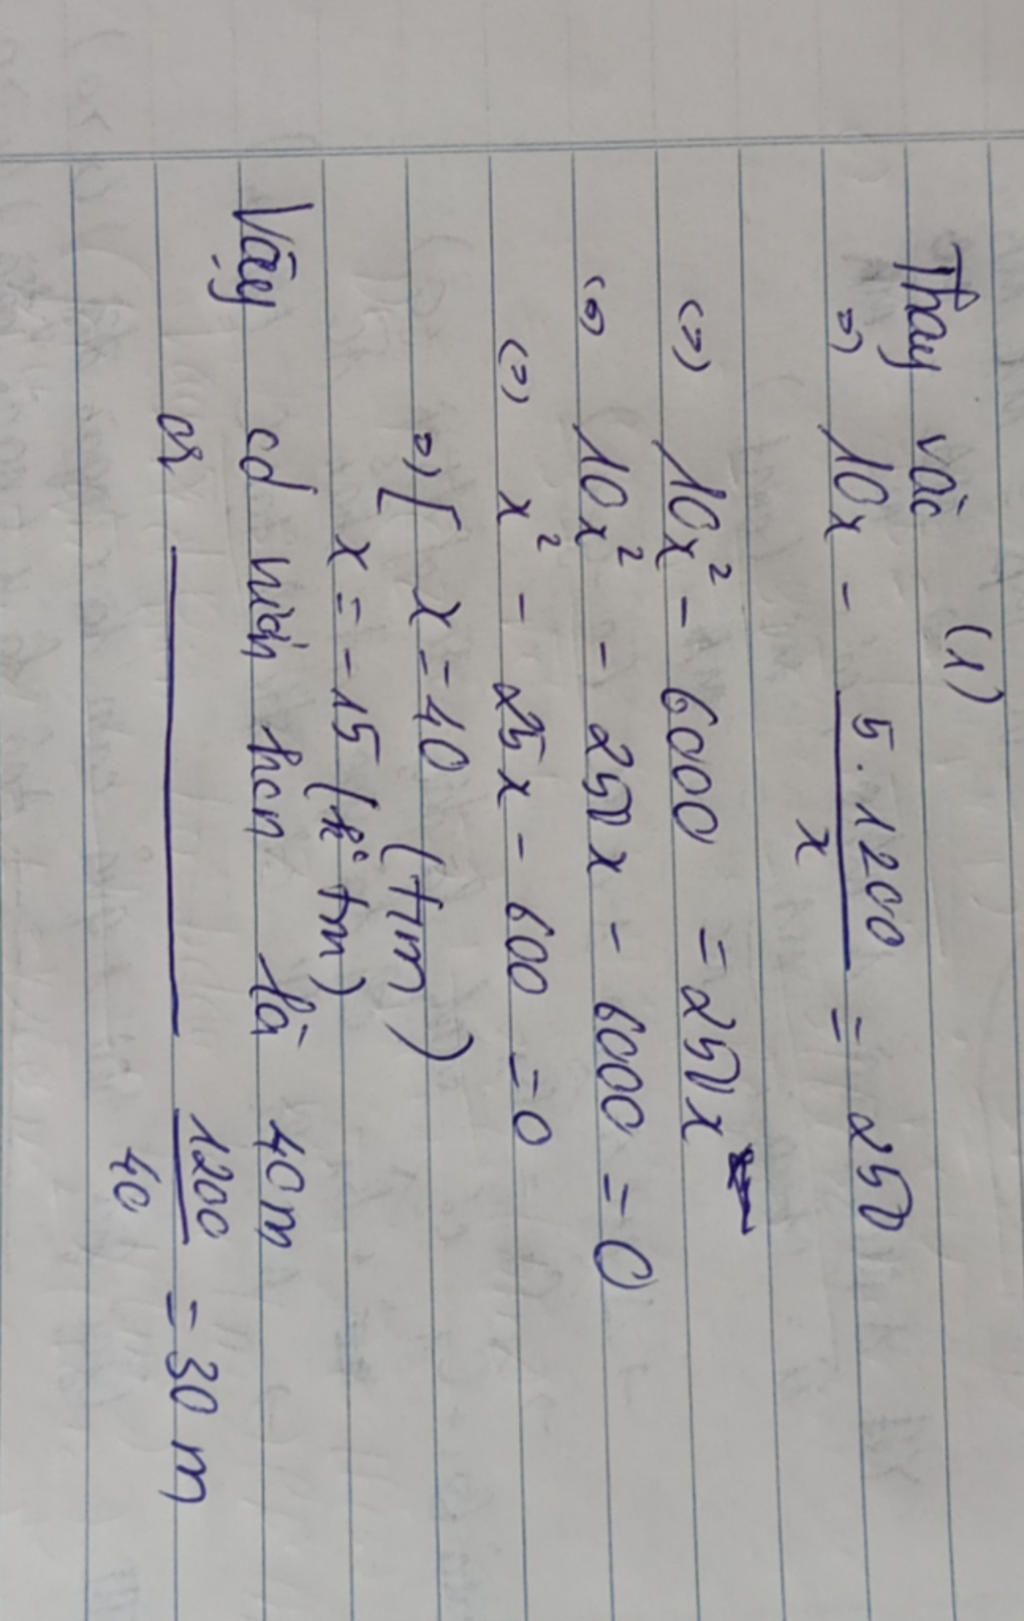 Thay vào (1)
=> 10x - 5.1200/x = 250
<=> 10x² - 6000 = 250x
<=> 10x² - 250x - 6000 = 0
<=> x² - 25x - 600 = 0
=> [ x = 40 (tm)
x = -15 (k° tm)
Vậy cd hình hcn là 40m
cr ———— 1200/40 = 30 m